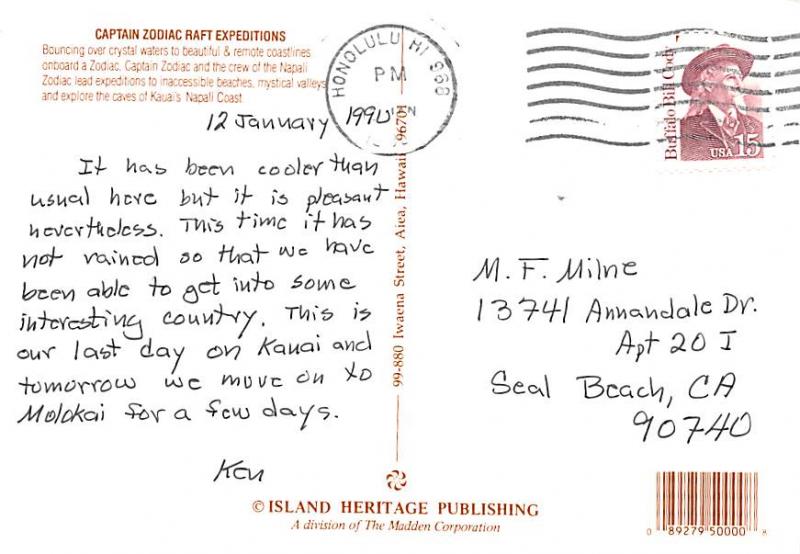 CAPTAIN ZODIAC RAFT EXPEDITIONS
Bouncing over crystal waters to beautiful & remote coastlines
onboard a Zodiac. Captain Zodiac and the crew of the Napali
Zodiac lead expeditions to inaccessible beaches, mystical valleys
and explore the caves of Kauai's Napali Coast.
12 January 1990
It has been cooler than
usual here but it is pleasant
nevertheless. This time it has
not rained so that we have
been able to get into some
interesting country. This is
our last day on Kauai and
tomorrow we move on to
Molokai for a few days.
Ken
99-880 Iwaena Street, Aiea, Hawaii 96701
HONOLULU HI 968
PM
Buffalo Bill Cody
USA 15
M. F. Milne
13741 Annandale Dr.
Apt 20 I
Seal Beach, CA
90740
© ISLAND HERITAGE PUBLISHING
A division of The Madden Corporation
0 89279 50000 8